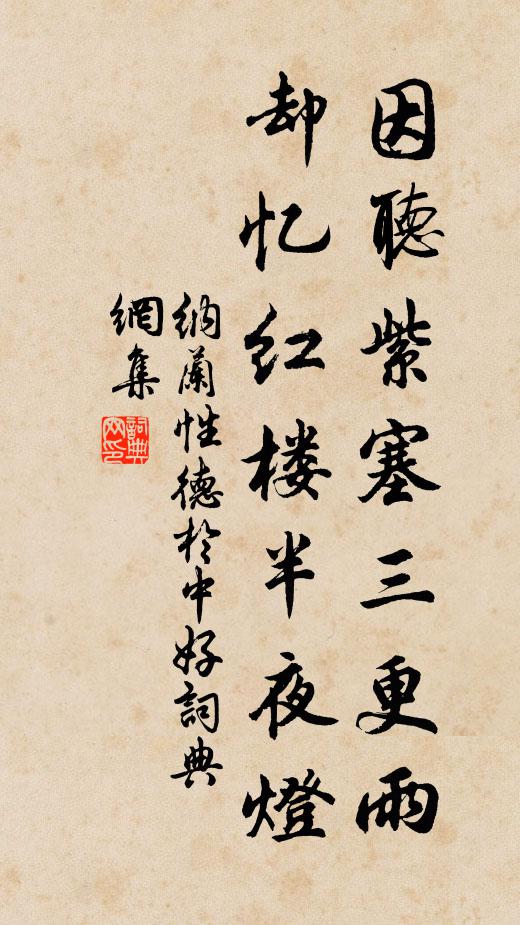 因聽紫塞三更雨
却忆红楼半夜燈
纳蘭性德於中好詞典
網集
詞典
网印